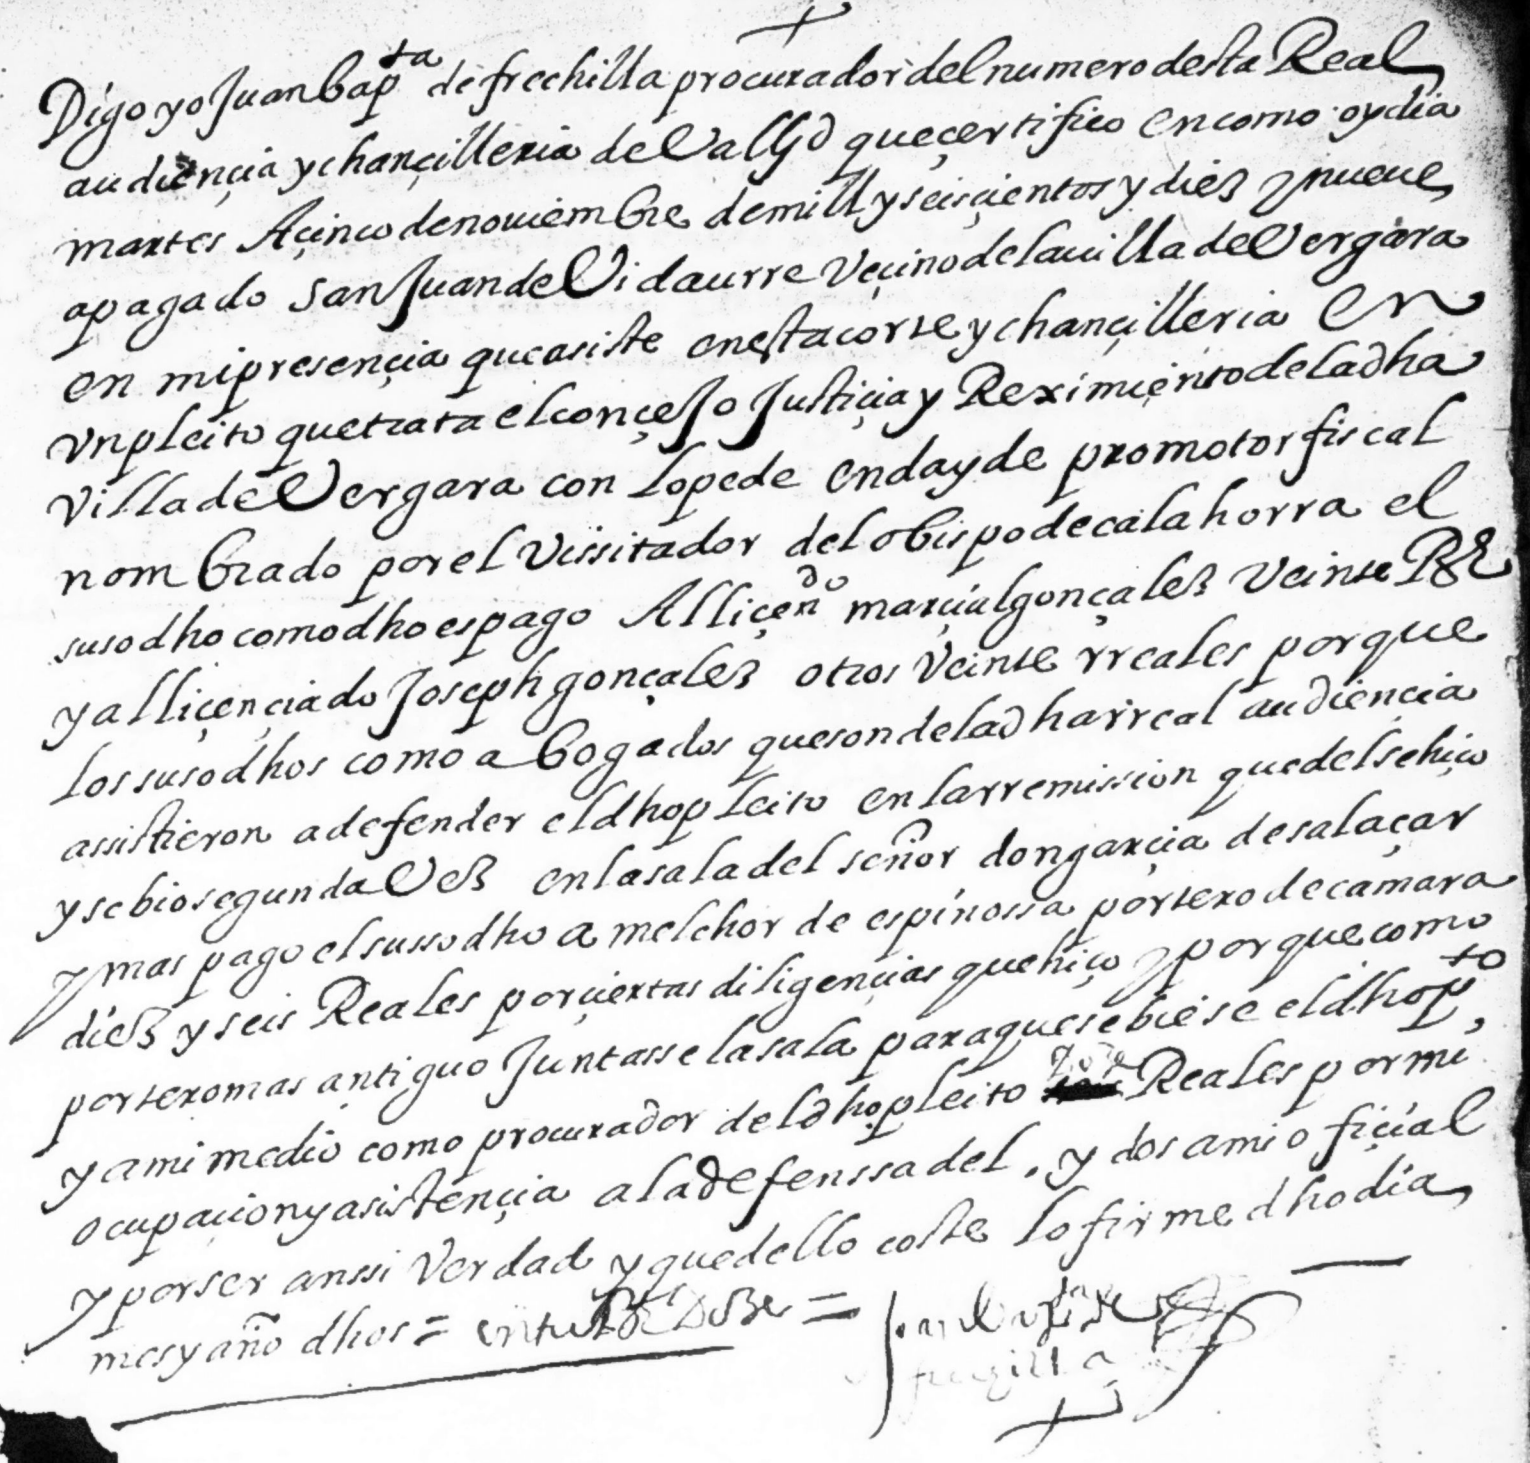 Digo yo Juan bapta de frechilla procurador del numero desta Real
audiençia y chançilleria de Vallyd que çertifico en como oy dia
martes A çinco de noviembre de mill y seisçientos y diez y nueve
a pagado San Juan de Vidaurre veçino de la villa de Vergara
en mi presençia que asiste en esta corte y chançilleria en
un pleito que trata el conçejo Justiçia y Reximiento de la dha
villa de Vergara con lope de endayde promotor fiscal
nombrado por el vissitador del obispo de calahorra el
susodho como dho es pago Al liçendo marçial gonçalez veinte Rs
y al liçençiado Joseph gonçalez otros veinte rreales porque
los susodhos como abogados que son de la dha rreal audiençia
assistieron a defender el dho pleito en la rremission que del se hiço
y se bio segunda vez en la sala del señor don garçia de salaçar
y mas pago el sussodho a melchor de espinossa portero de camara
diez y seis Reales por çiertas diligençias que hiço y porque como
portero mas antiguo Juntasse la sala para que se biese el dho pto
y a mi medio como procurador del dho pleito doçe Reales por mi
ocupaçion y asistençia a la defenssa del . y dos a mi ofiçial
y por ser anssi verdad y que dello coste lo firme dho dia
mes y año dhos = entre Rs Doze =
Juan bapta de
frechilla